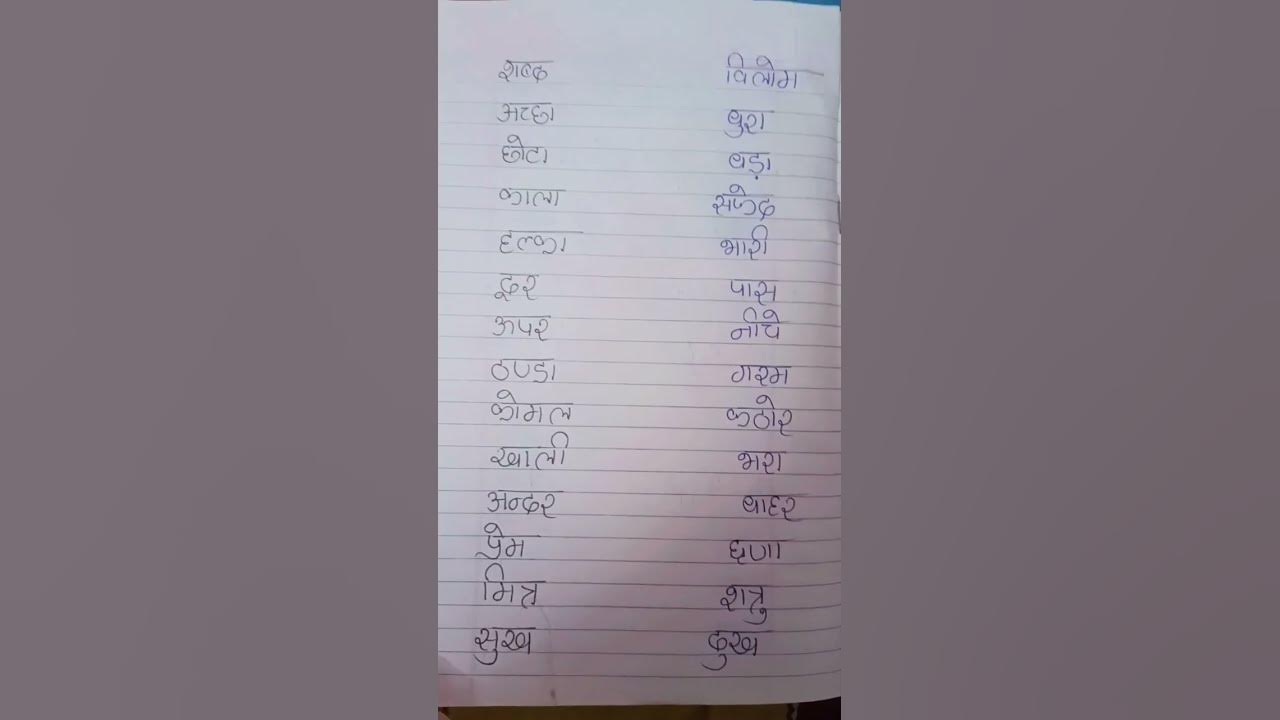 शब्द विलोम
अच्छा बुरा
छोटा बड़ा
काला सफेद
हल्का भारी
दूर पास
ऊपर नीचे
ठण्डा गरम
कोमल कठोर
खाली भरा
अन्दर बाहर
प्रेम घृणा
मित्र शत्रु
सुख दुख